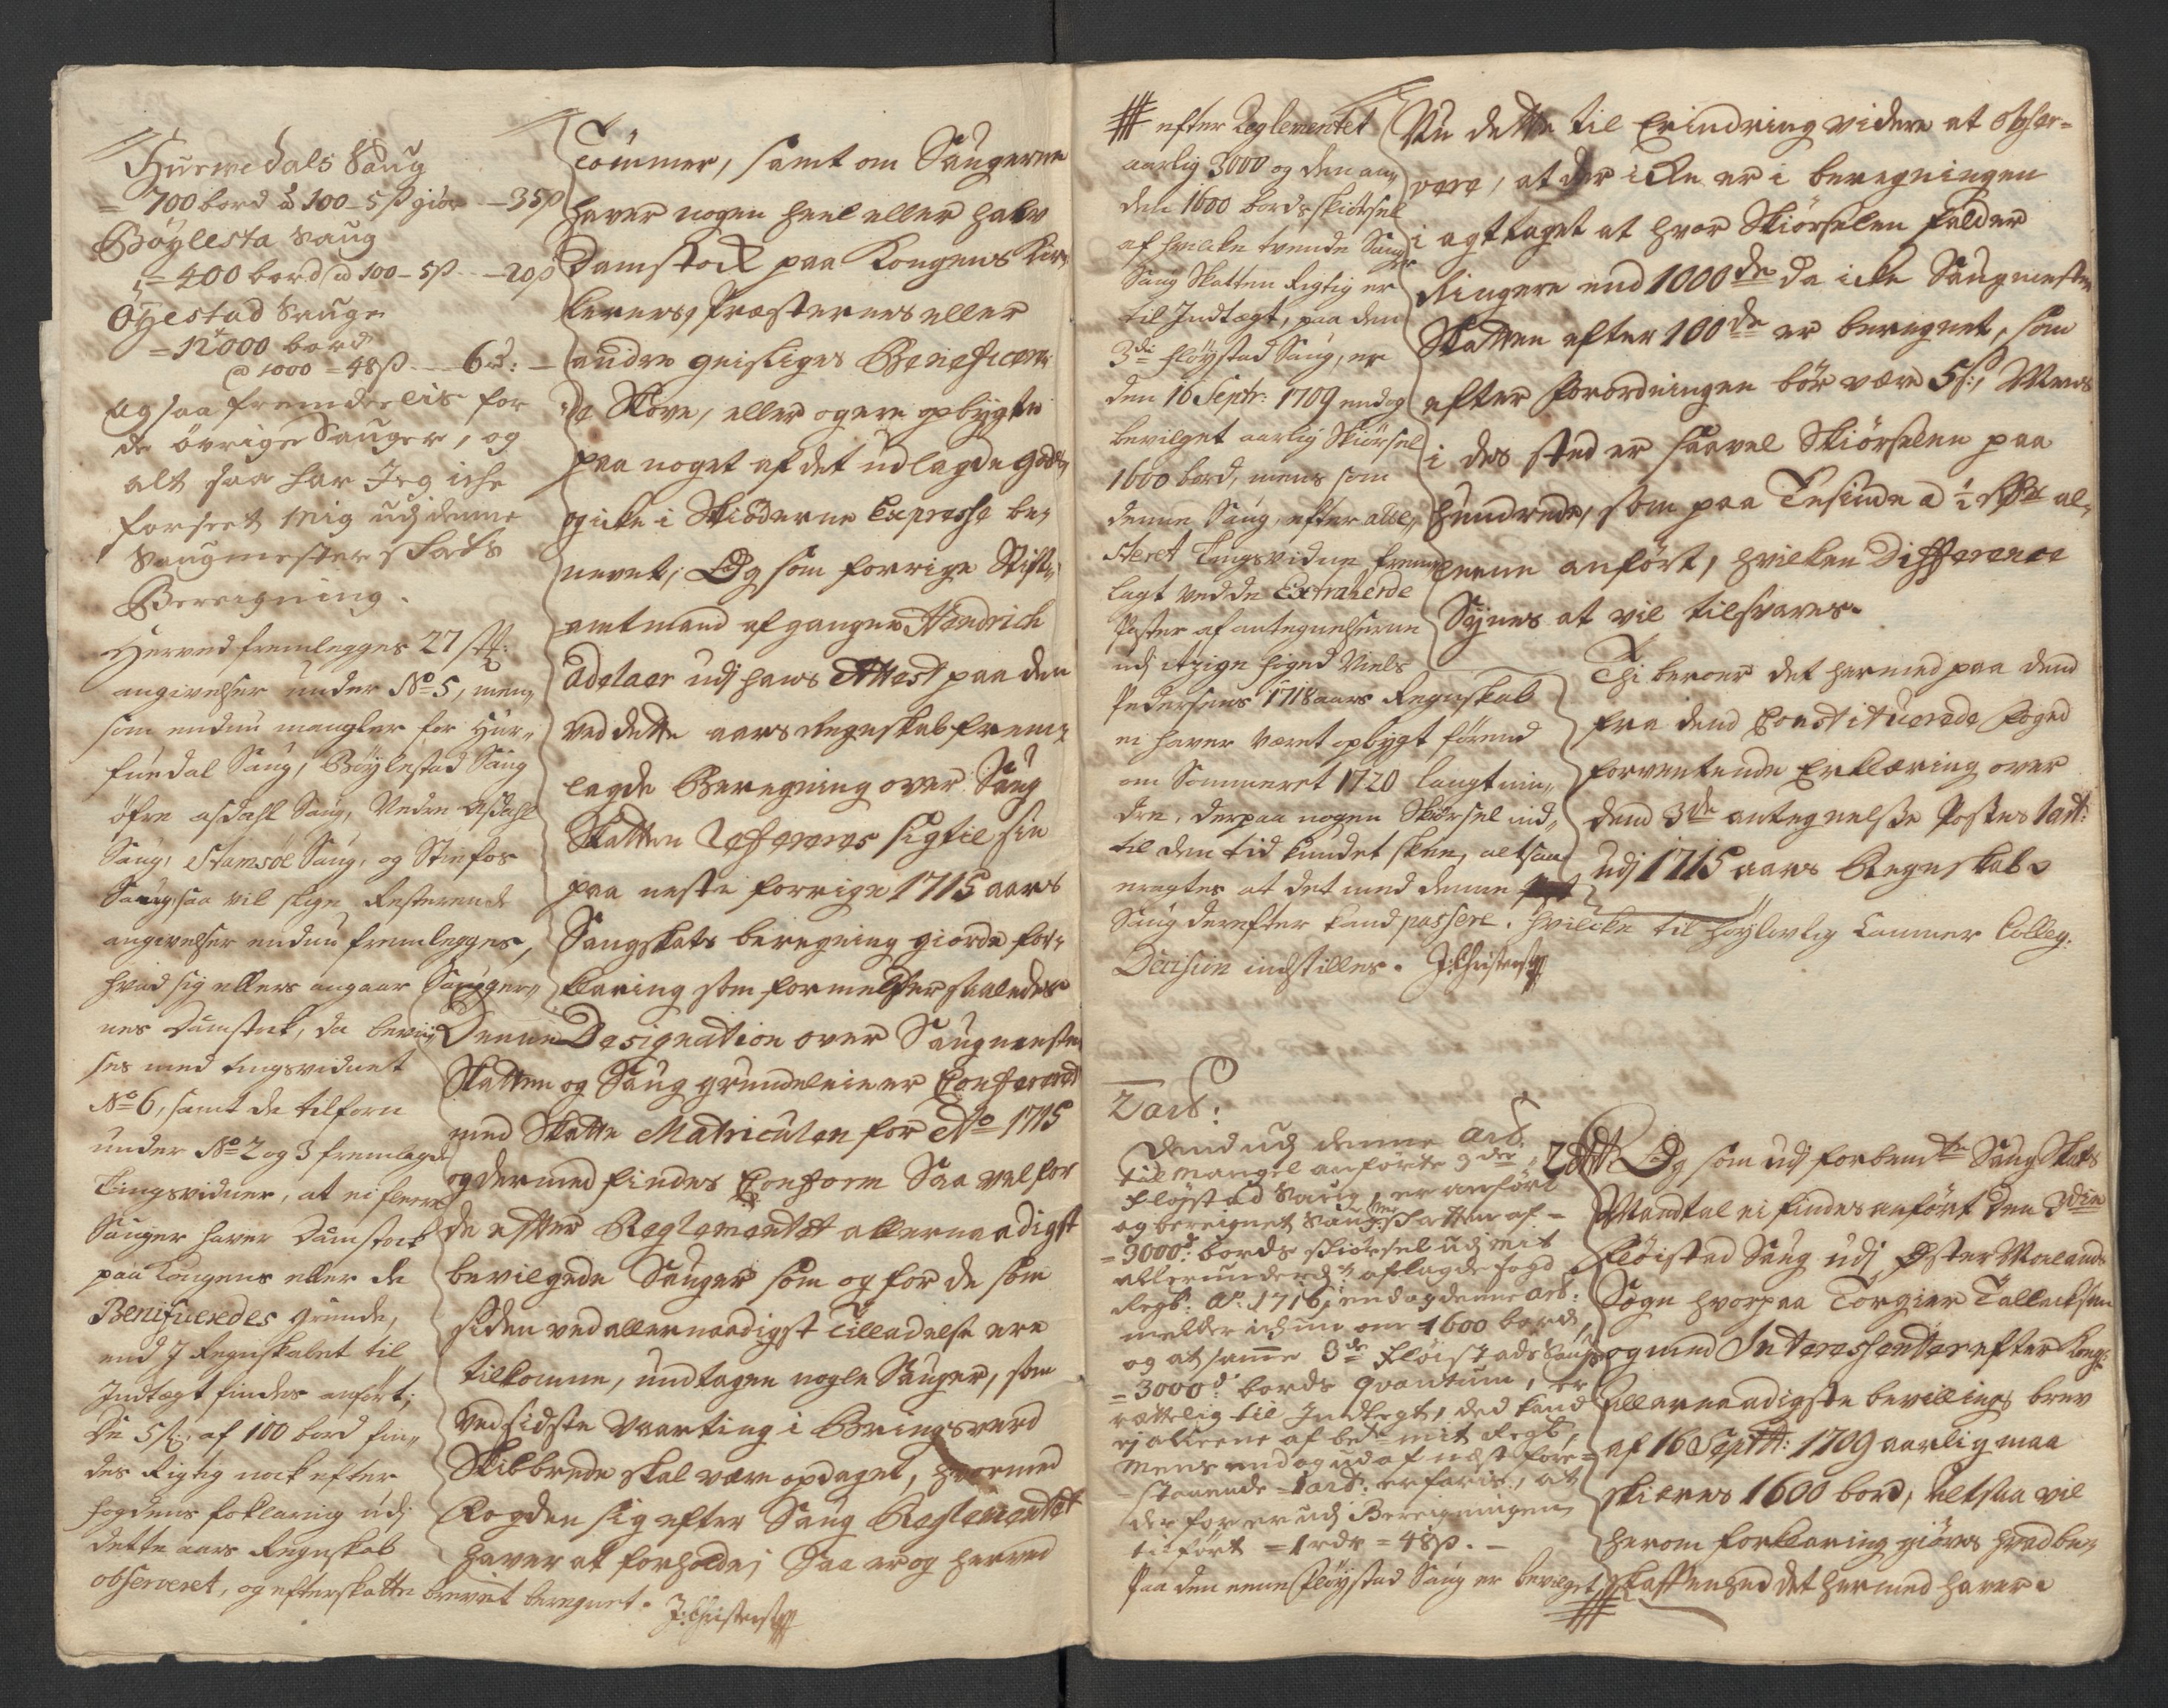 Hurwedals Saug
= 700 bord à 100 - 5 ß giør — 35 ß
Böylesta Saug
= 400 bord à 100 - 5 ß — 20 ß
Öÿestad Sauge
= 12000 bord
@ 1000 = 48 ß — 6 rd: —
og saa fremdeelis for
de övrige Sauger, og
alt saa har Jeg iche
forseet Mig udj denne
Saugmester skats
Bereigning.
Herved fremlegges 27 st:
angivelser under No 5, men
som endnu mangler for Hur-
fuedal Saug, Böylestad Saug
öfre Asdahl Saug, Nedre Asdahl
Saug, Stamsöe Saug, og Stinfos
Saug, saa vil slige Resterende
angivelser endnu fremlegges,
hvad sig ellers angaar Sauger-
nes Damstock, da bevii-
ses med tingsvidnet
No 6, samt de tilforn
under No 2 og 3 fremlagde
Tingsvidner, at ei fleere
Sauger haver Damstock
paa Kongens eller de
Benificeredes grunde,
end J Regnskabet til
Indtægt findes anført;
De 5 ß: af 100 bord fin-
des Rigtig nock efter
fogdens forklaring udj
dette aars Regnskab
observeret, og efter skatte brevet beregnet. J: Christens
Tömmer, samt om Saugerne
haver nogen heel eller halv
Damstock paa Kongens Kir-
kernes, Præsternes eller
andre geistliges Beneficere-
de Skove, eller og ere opbygte
paa noget af det udlagde gods,
og icke i Skiöderne Expresse be-
nevnt; Og som forrige Stift-
amtmand afgangne Hendrich
Adelaer udj hans Attest paa den
ved dette aars Regnskab frem-
lagde Beregning over Saug
Skatten Refereres sig til sin
paa neste forrige 1715 aars
Saugskats beregning giorde for-
klaring som formelder saaledes
Denne Designation over Saugmester
Skatten og Saug grundeleie er Confererit
med Skatte Matriculen for Ao 1715
og dermed findes Conform Saa vel for
de efter Reglementet allernaadigst
bevilgede Sauger som og for de som
siden ved allernaadigst Tilladelse ere
tilkomne, undtagen nogle Sauger, som
ved sidste Waarting i Bringsverd
Skibbrede skal være opdaget, hvormed
Fogden sig efter Saug Reglementet
haver at forholde; Saa er og herved
# efter Reglementet
aarlig 3000 og den an-
den 1600 bords skiörsel
af hvilcke tvende Sauger
Saug Skatten Rigtig er
til Indtægt, paa den
3die Flöystad Saug, er
den 16 Septr: 1709 endog
bevilget aarlig Skiörsel
1600 bord, mens som
denne Saug, efter alle-
steret Tingsvidne frem-
lagt ved de Extraherede
Poster af antegnelserne
udj itzige foged Niels
Pedersens 1718 aars Regnskab
ei haver været opbygt förend
om Sommeret 1720 langt min-
dre, derpaa nogen Skiörsel ind-
til den tid kundet skee, altsaa
eragtes at det med denne
Saug derefter kand passere. hvilcke til Höylovlig Cammer Colleg:
Decision indstilles. J: Christens
Nu dette til Erindring videre at obser-
vere, at der icke er i beregningen
i agttaget at hvor Skiörselen falder
Ringere end 1000de da icke Saugmester
Skatten efter 100de er beregnet, som
efter forordningen bör være 5 ß:, Mens
i des sted er saavel Skiörselen paa
hundrede, som paa Tusinde à ½ Rdr al-
leene anfört, hvilken Difference
Synes at vil tilsvares.
Thi beroer det hermed paa dend
fra dend Constituerede foged
forventende Erklæring over
dend 3de antegnelse Postes 1 art:
udj 1715 aars Regnskab.
2 art:
Dend udj denne art:
til Mangel anförte 3die
Flöjstad Saug, er anfört
og bereignet Saugmr: skatten af
= 3000d: bords skiörsel udj Mit
allerunderd:st aflagde fogd
Regsb: Ao: 1716; endog denne art:
melder ichun om 1600 bord,
og at samme 3de Flöistads Saugs
= 3000d: bords Qvantum, er
rættelig til Indtegt, ded kand
ej alleene af bete mit Regsb,
Mens endog ud af næst fore-
staaende 1 art: erfaris, at
der for er udj Bereigningen
tilfört = 1 rdr = 48 ß. —
Paa den eene Flöystad Saug er bevilget #
2det Og som udj forbemte Saug Skats
Mandtal ei findes anfört den 3die
Flöistad Saug udj Öster Molands
Sogn hvorpaa Torgier Tallacksen
og med Interessenter efter Kong:
allernaadigste bevillings brev
af 16 Sept: 1709 aarlig maa
skieres 1600 bord, altsaa vil
herom forklaring giöres hvad be-
skaffenhed det hermed haver.